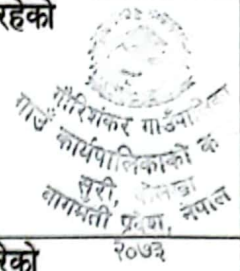 रहेको
गौरिशंकर गाउँपालिका
गाउँ कार्यपालिकाको क
सुरी, दोलखा
बागमती प्रदेश, नेपाल
२०७३
रेको